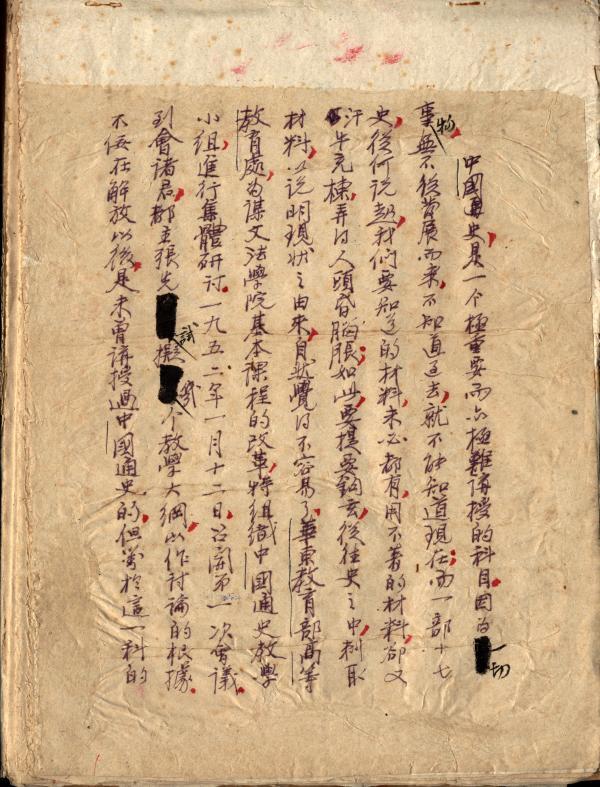 中國通史是一个極重要而亦極難講授的科目因為一切
事物無不從發展而來不知道過去就不能知道現在而一部十七
史從何說起我們要知道的材料未必都有用不着的材料卻又
汗牛充棟弄得人頭昏腦脹如此要提要鈎玄從往史之中刺取
材料以說明現狀之由來自然覺得不容易了華東教育部高等
教育處為謀文法學院基本課程的改革特組織中國通史教學
小組進行集體研討一九五二年一月十二日召開第一次會議
到會諸君都主張先試擬幾个教學大綱以作討論的根據
不佞在解放以後是未曾講授過中國通史的但對於這一科的